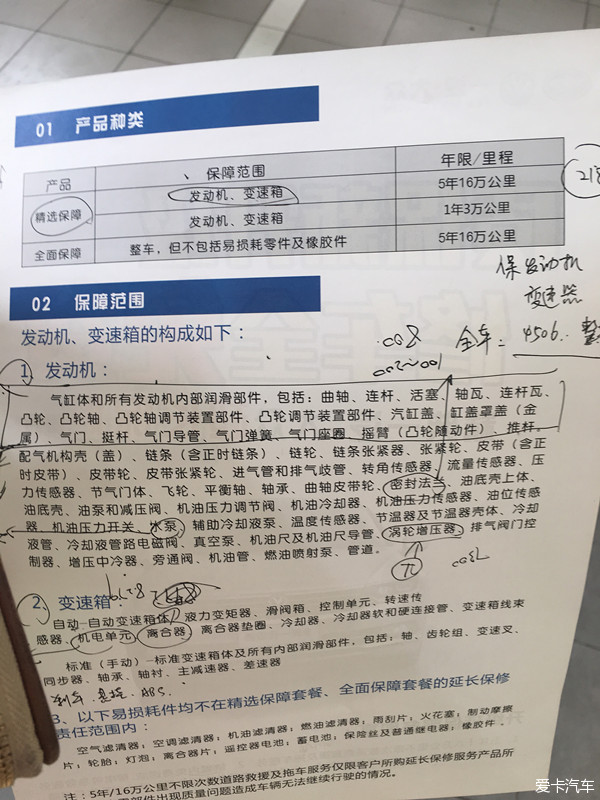 01 产品种类
产品 保障范围 年限/里程
精选保障 发动机、变速箱 5年16万公里
发动机、变速箱 1年3万公里
全面保障 整车，但不包括易损耗零件及橡胶件 5年16万公里
保发动机
变速器
02 保障范围
发动机、变速箱的构成如下：
全车：4506..
1、发动机：
气缸体和所有发动机内部润滑部件，包括：曲轴、连杆、活塞、轴瓦、连杆瓦、
凸轮、凸轮轴、凸轮轴调节装置部件、凸轮调节装置部件、汽缸盖、缸盖罩盖（金
属）、气门、挺杆、气门导管、气门弹簧、气门座圈、摇臂（凸轮随动件）、推杆。
配气机构壳（盖）、链条（含正时链条）、链轮、链条张紧器、张紧轮、皮带（含正
时皮带）、皮带轮、皮带张紧轮、进气管和排气歧管、转角传感器、流量传感器、压
力传感器、节气门体、飞轮、平衡轴、轴承、曲轴皮带轮、密封法兰、油底壳上体、
油底壳、油泵和减压阀、机油压力调节阀、机油冷却器、机油压力传感器、油位传感
器、机油压力开关、水泵、辅助冷却液泵、温度传感器、节温器及节温器壳体、冷却
液管、冷却液管路电磁阀、真空泵、机油尺及机油尺导管、涡轮增压器、排气阀门控
制器、增压中冷器、旁通阀、机油管、燃油喷射泵、管道。
2、变速箱：
自动-自动变速箱体、液力变矩器、滑阀箱、控制单元、转速传
感器、机电单元、离合器、离合器垫圈、冷却器、冷却器软和硬连接管、变速箱线束
标准（手动）-标准变速箱体及所有内部润滑部件，包括：轴、齿轮组、变速叉、
同步器、轴承、轴衬、主减速器、差速器
ABS.
3、以下易损耗件均不在精选保障套餐、全面保障套餐的延长保修
责任范围内：
空气滤清器；空调滤清器；机油滤清器；燃油滤清器；雨刮片；火花塞；制动摩擦
片；轮胎；灯泡；离合器片；遥控器电池；蓄电池；保险丝及普通继电器；橡胶件。
注：5年/16万公里不限次数道路救援及拖车服务仅限客户所购延长保修服务产品所
零部件出现质量问题造成车辆无法继续行驶的情况。
爱卡汽车